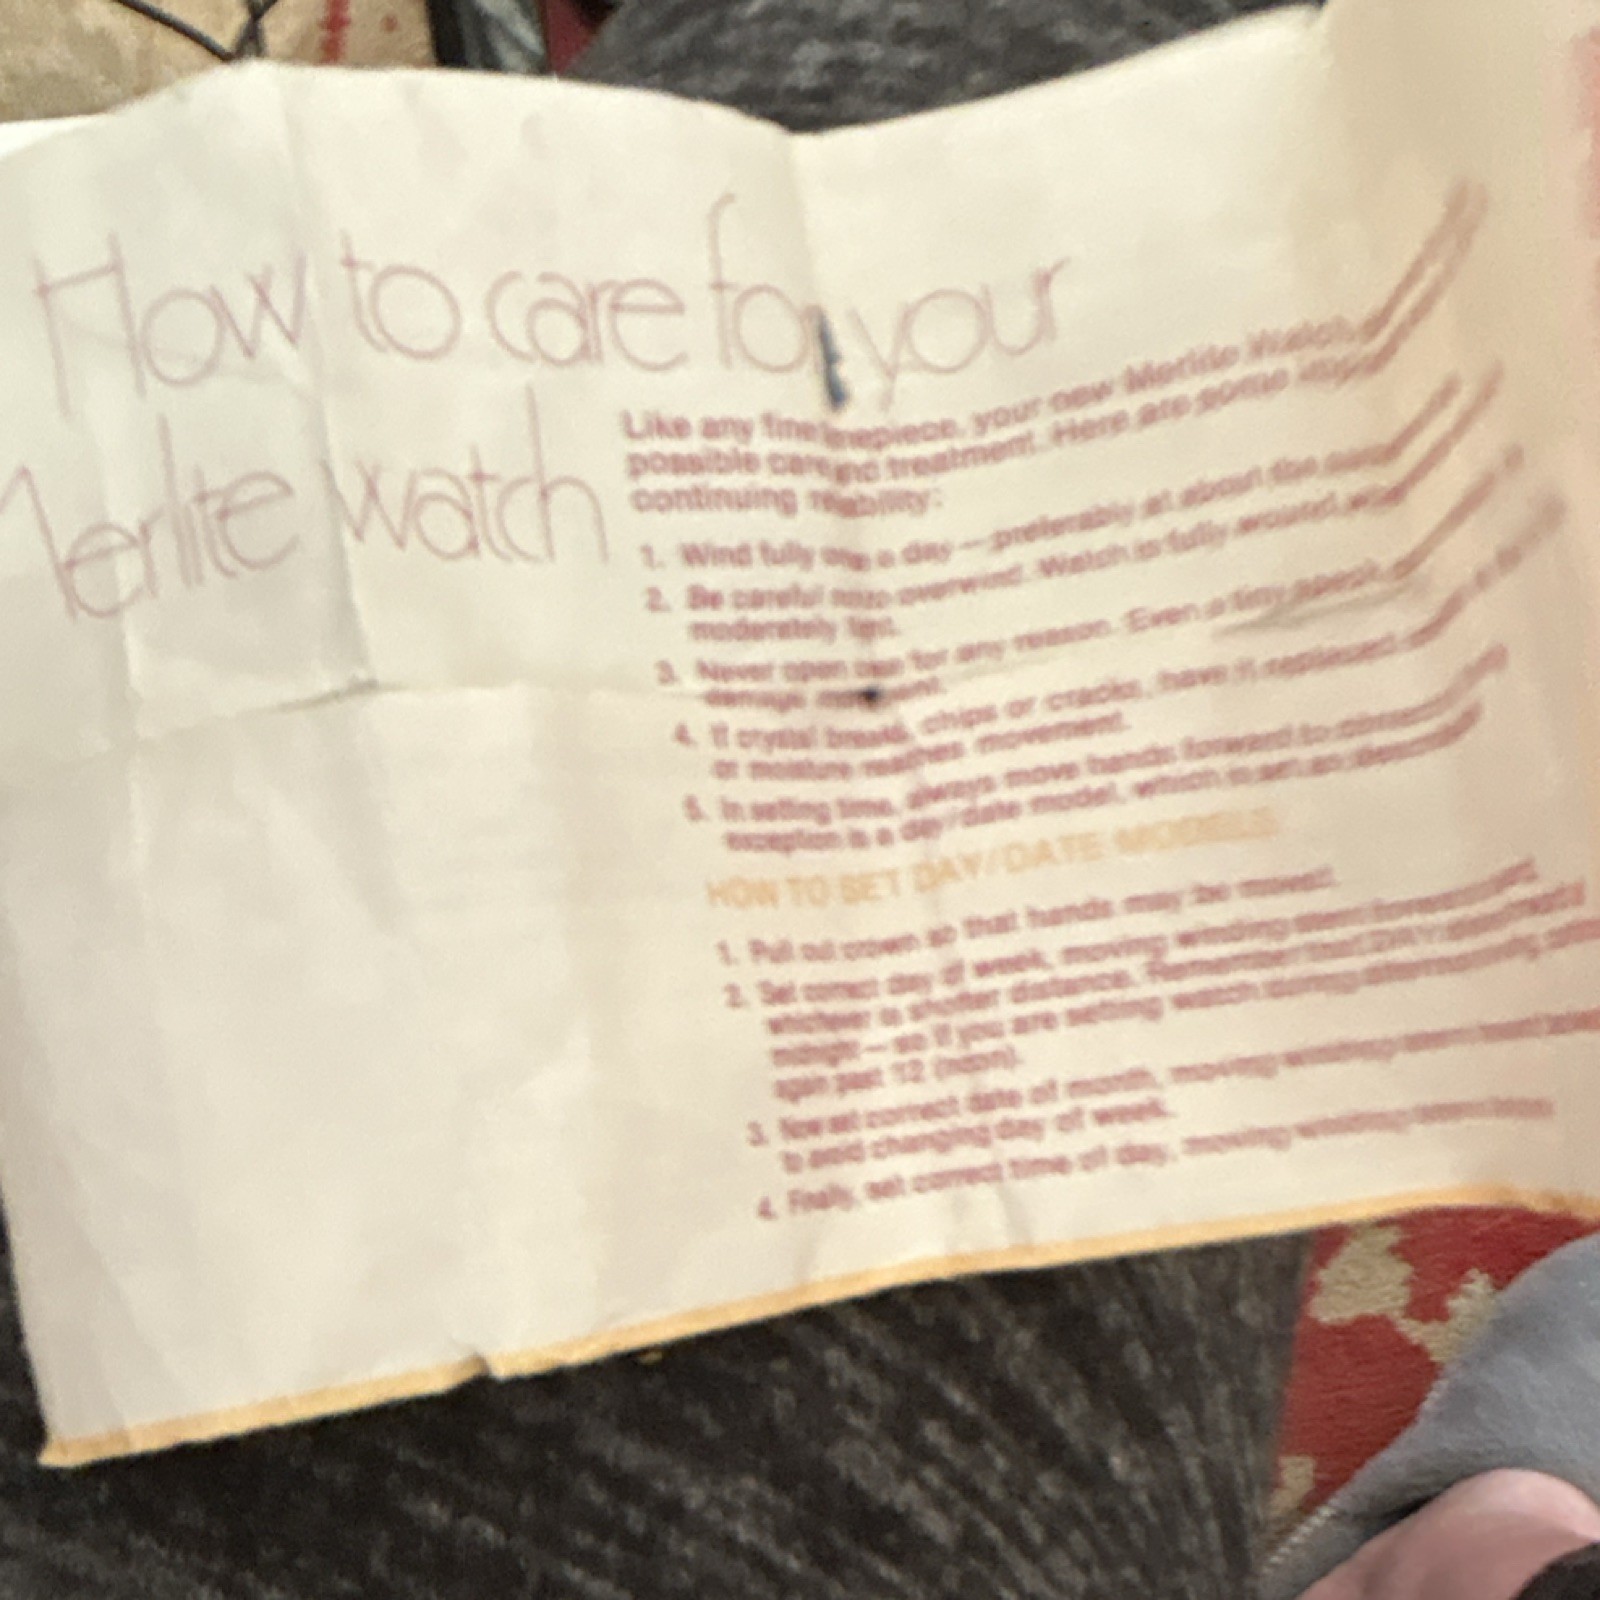 How to care for your
Merlite Watch
Like any fine timepiece, your new Merlite Watch
possible care and treatment. Here are some
continuing reliability:
1. Wind fully once a day — preferably at about the
2. Be careful not to overwind. Watch is fully wound
moderately
3. Never open case for any reason. Even a tiny speck
damage movement.
4. If crystal breaks, chips or cracks, have it replaced
or moisture reaches movement.
5. In setting time, always move hands forward to
exception is a day/date model, which is set as
HOW TO SET DAY/DATE MODELS
1. Pull out crown so that hands may be moved.
2. Set correct day of week, moving winding stem
whichever is shorter distance. Remember that DAY
midnight — so if you are setting watch during
again past 12 (noon).
3. Now set correct date of month, moving winding stem
to avoid changing day of week.
4. Finally, set correct time of day, moving winding stem